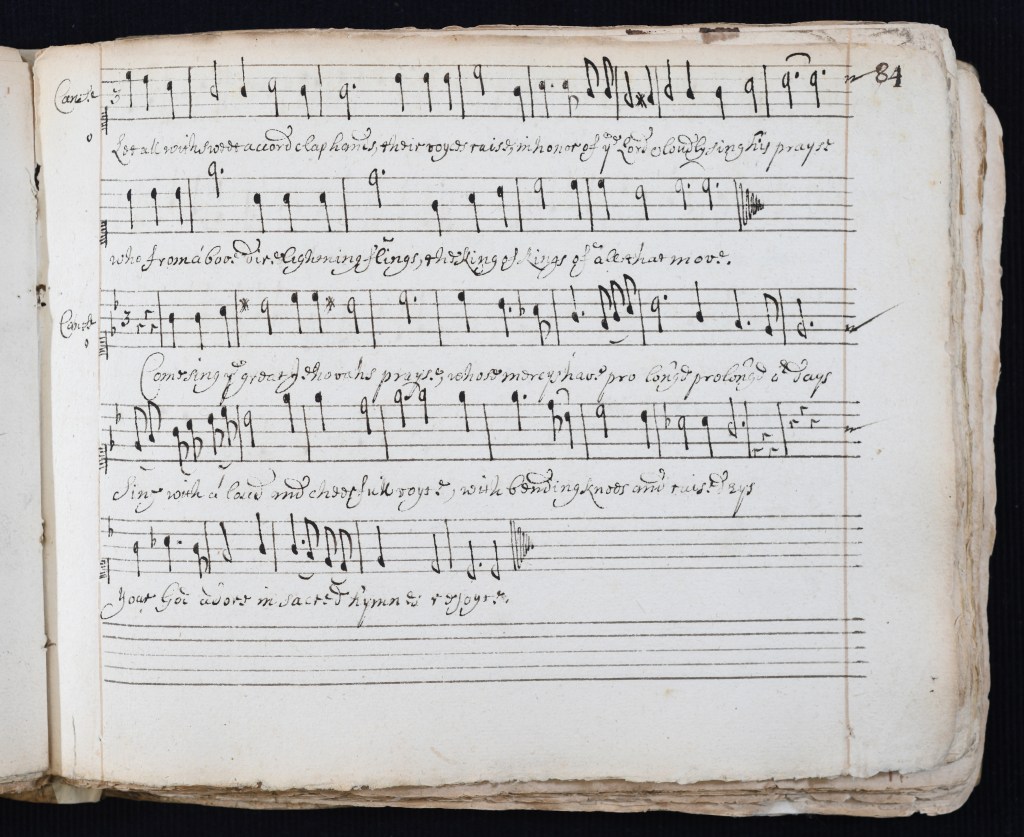 84
Canto
3
Let all with sweet accord clap hands, their voyces raise, in honor of yᵉ Lord & loudly sing his prayse
who from above dire lightning flings, the King of Kings of all that move.
Canto
3
Come sing yᵉ great Jehovahs prayse, whose mercys have prolong'd prolong'd oʳ days
Sing with a loud and cheerfull voyce, with bending knees and raised eys
your God adore in sacred hymnes rejoyce.